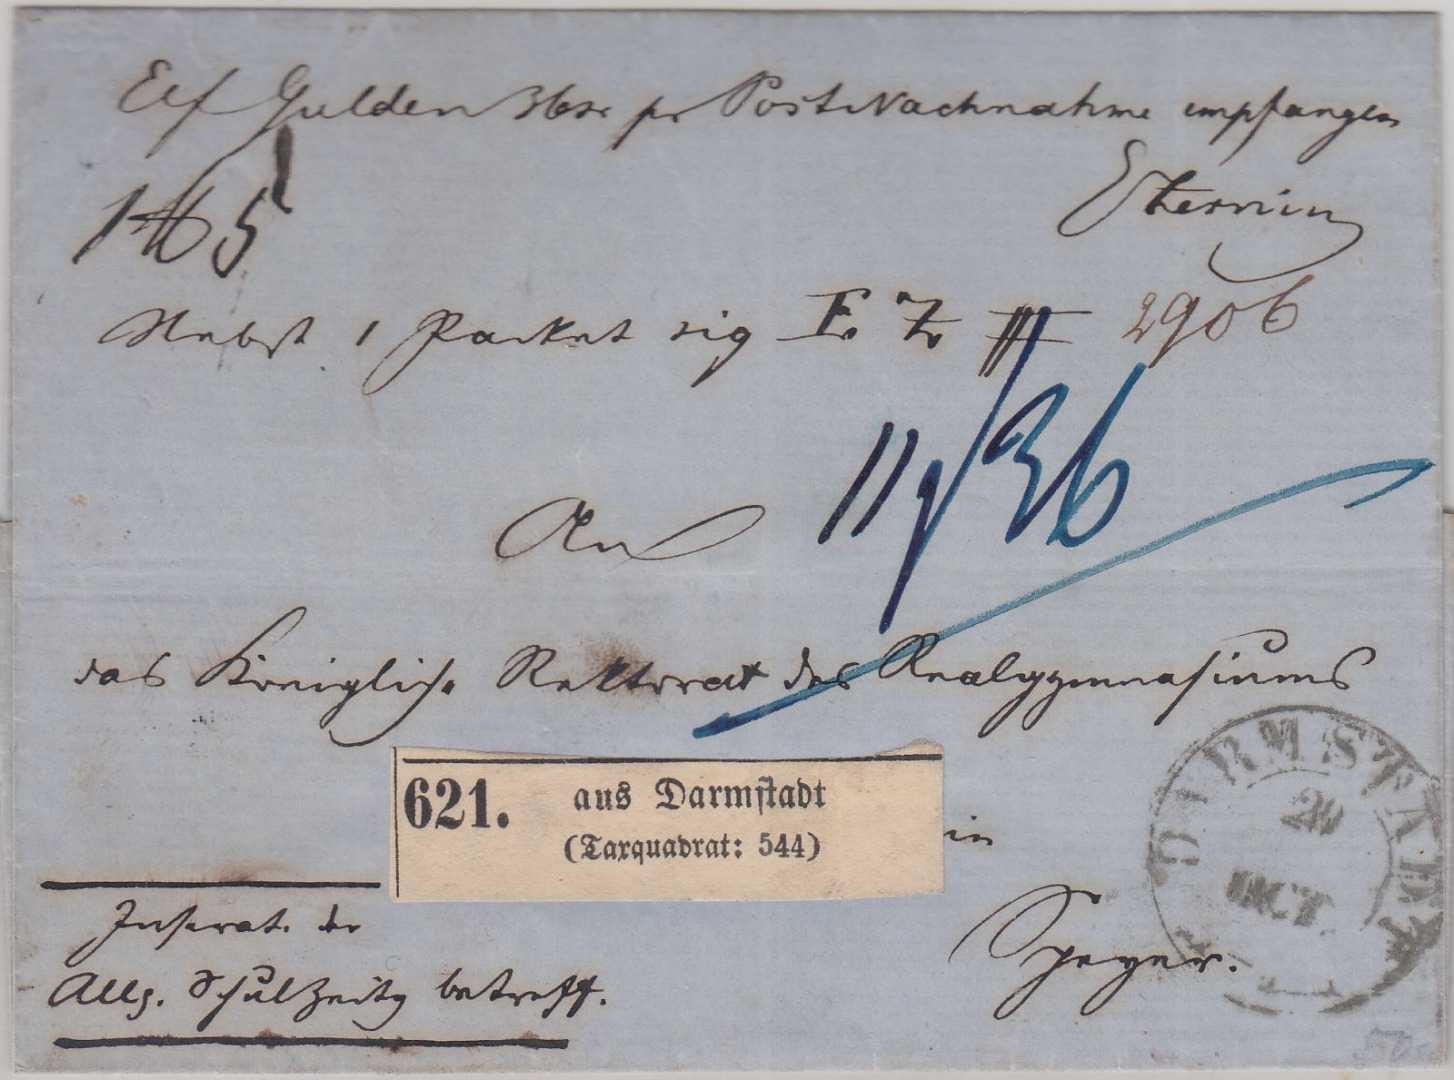 Elf Gulden 36xr pr Post Nachnahme empfangen
1 ℔ 5
Nebst 1 Packet sig E. Z 2906
11/36
An
das Königliche Rektorat des Realgymnasiums
621. aus Darmstadt
(Taxquadrat: 544)
in
Speyer.
Inserat. der
Allg. Schulzeitg betreff.
DARMSTADT
20
OCT.